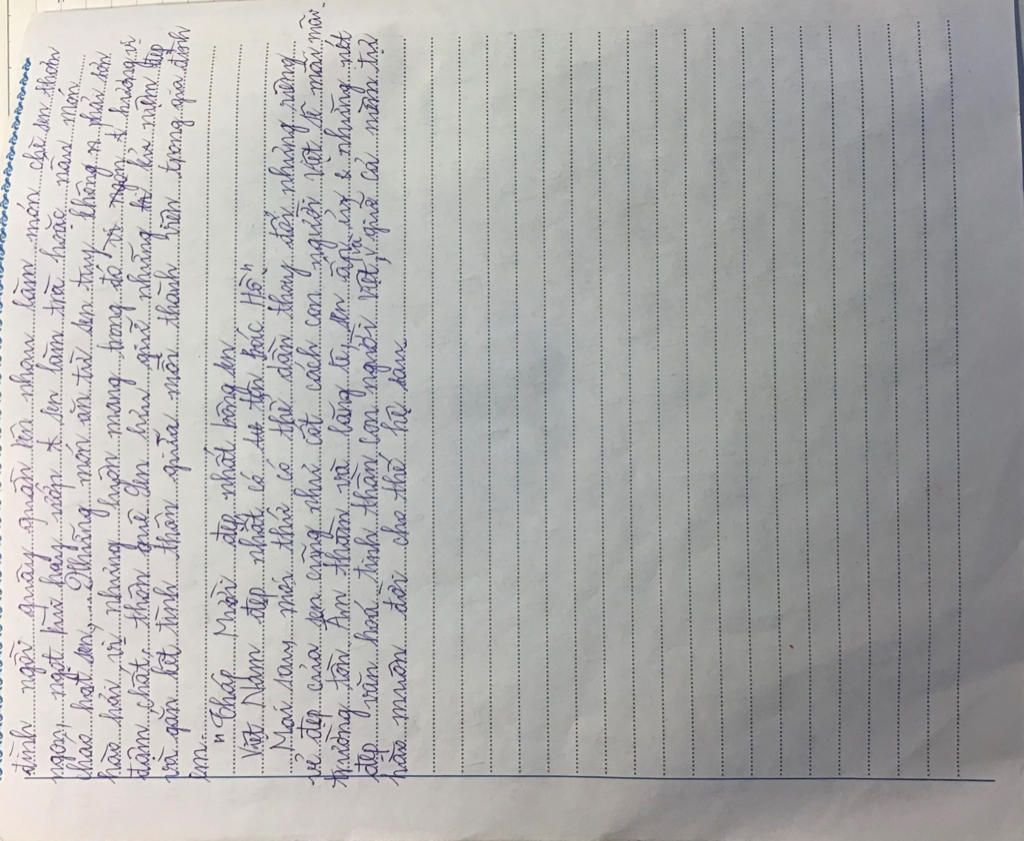 đình ngồi quây quần bên nhau làm món chè sen thơm
ngọt, ngọt bùi hay ướp sen làm trà hoặc nấu món
cháo hạt sen,... Những món ăn từ sen tuy không phải sơn
hào hải vị nhưng luôn mang trong đó hương vị
đậm chất thôn quê gìn giữ những kỉ niệm đẹp
và gắn kết tình thân giữa mỗi thành viên trong gia đình
em.
" Tháp Mười đẹp nhất bông sen
Việt Nam đẹp nhất có tên Bác Hồ"
Mai sau, mọi thứ có thể dần thay đổi nhưng riêng
vẻ đẹp của sen cũng như cốt cách con người Việt sẽ mãi mãi
trường tồn. Âm thầm và lặng lẽ, sen ấp ủ những nét
đẹp văn hoá, tinh thần con người Việt, giữa cả nền tự
hào muôn đời cho thế hệ sau.